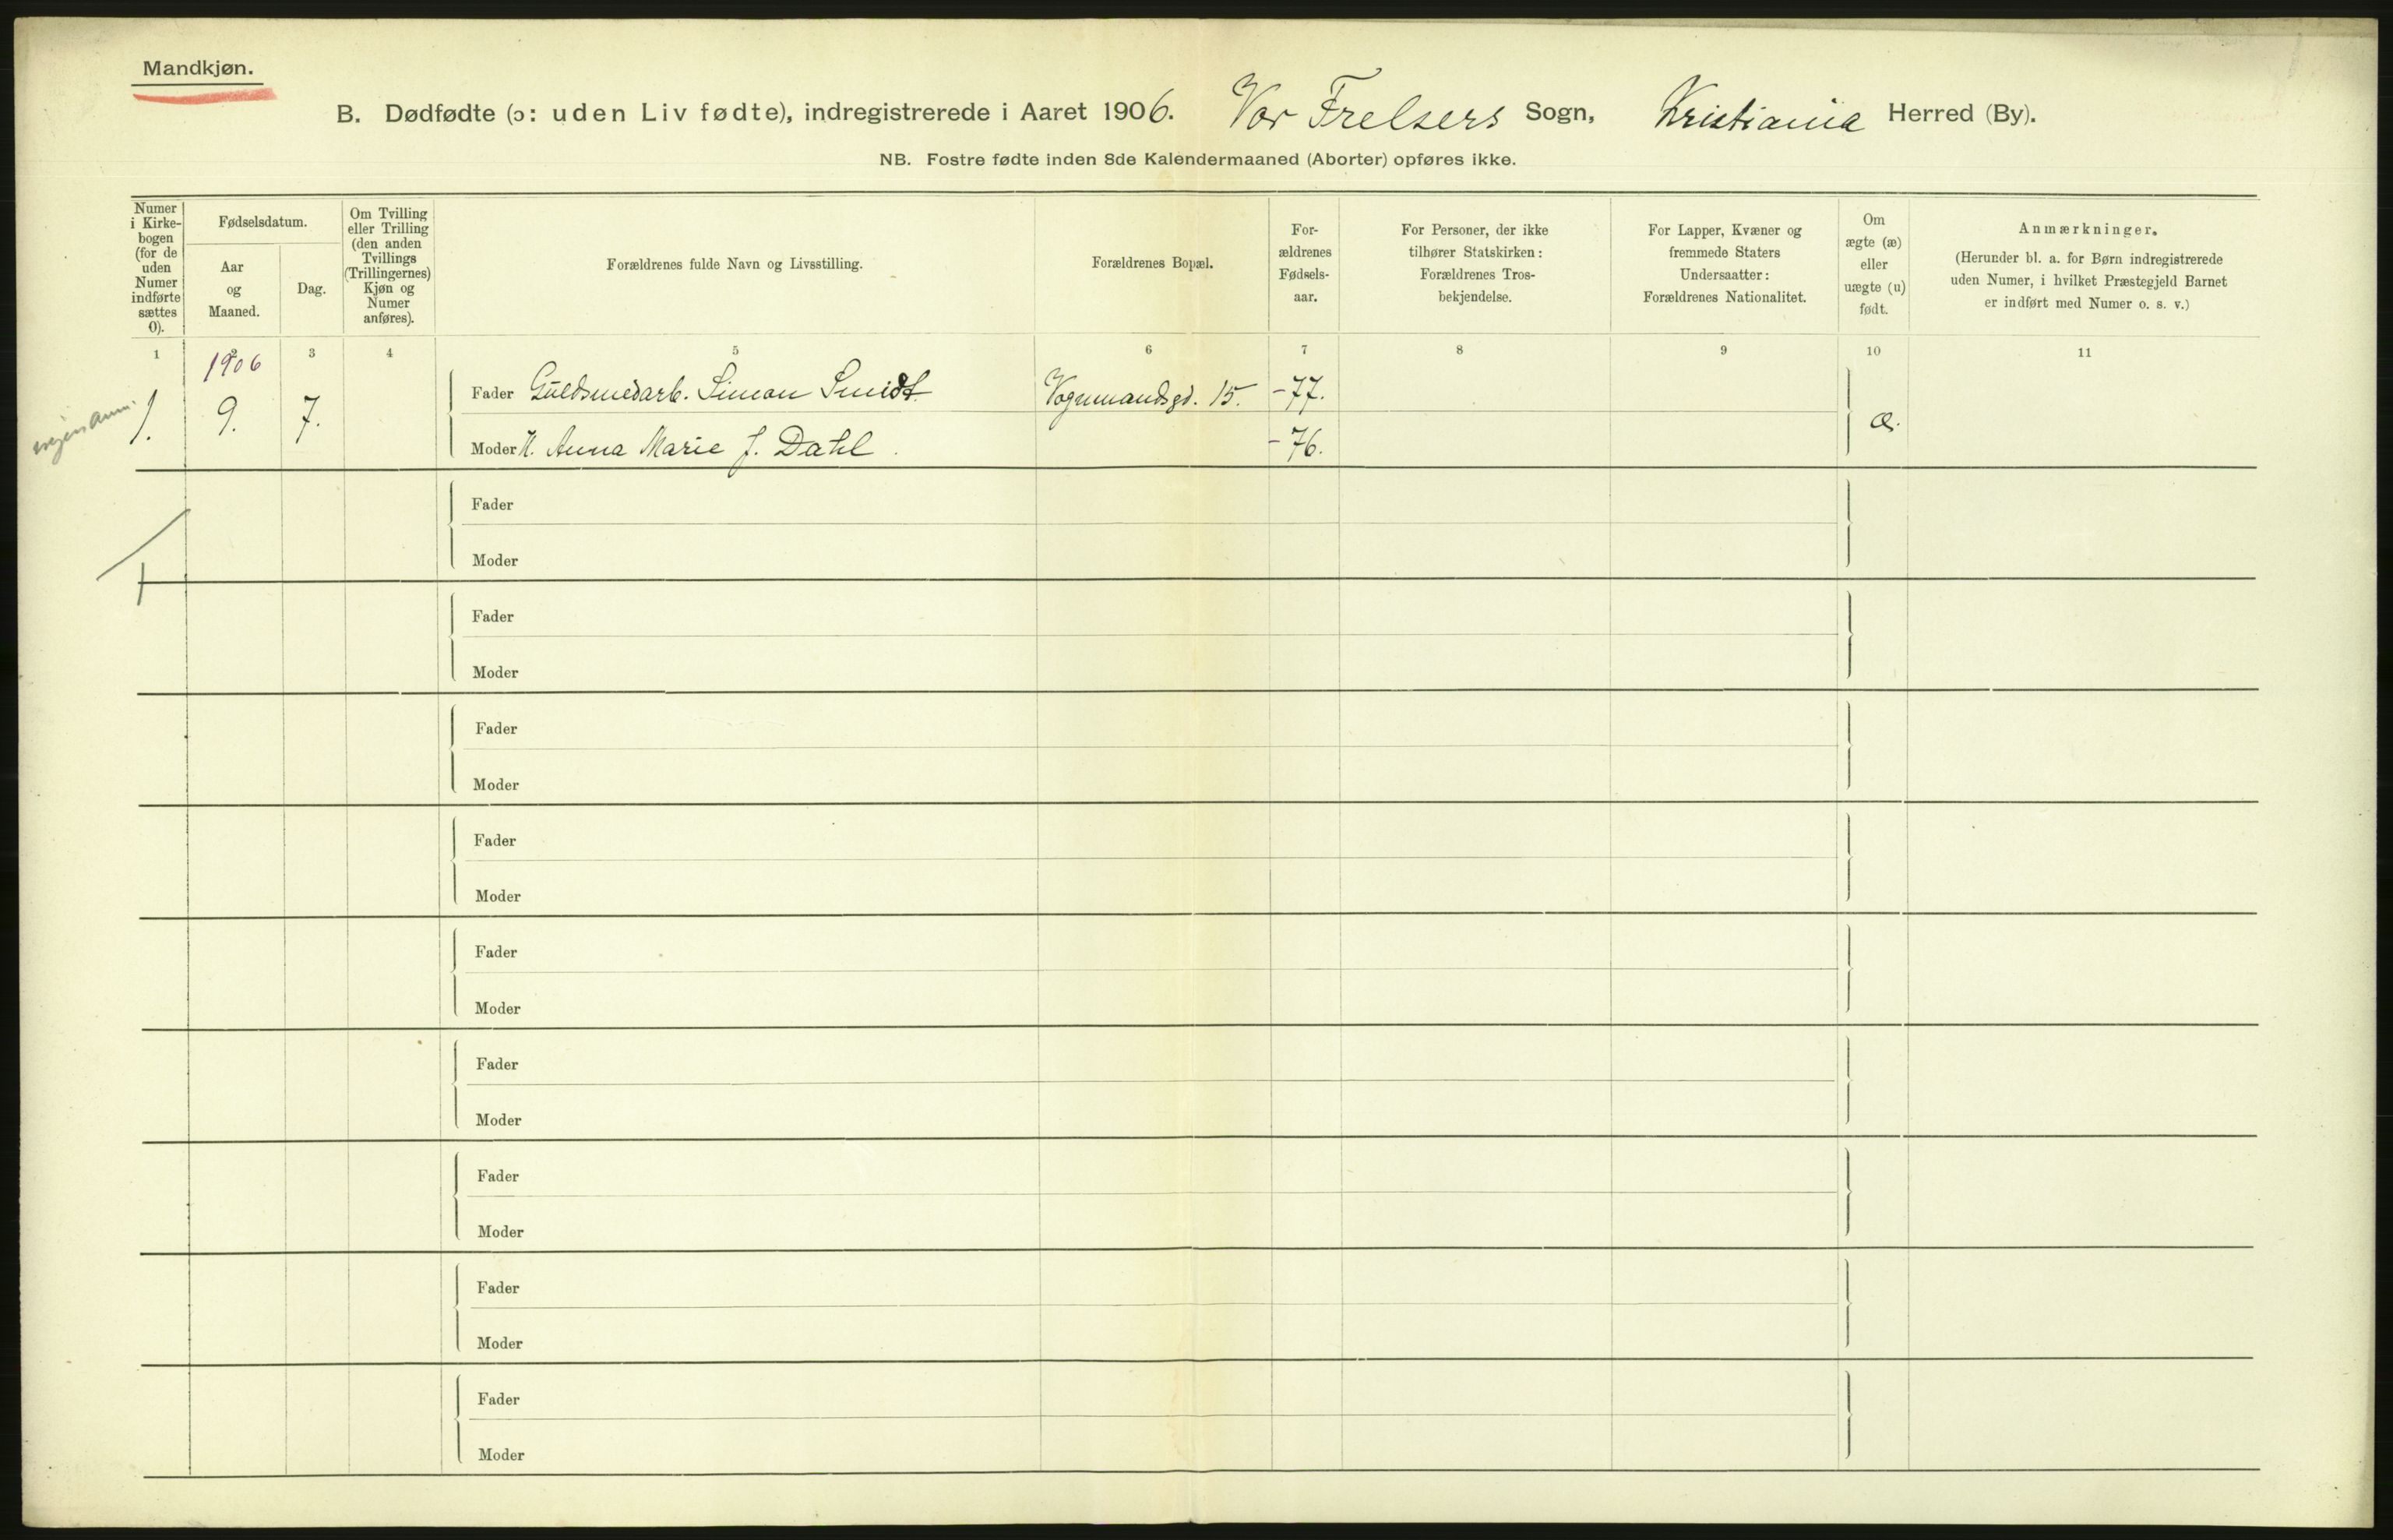 Mandkjøn.
B. Dødfødte (ɔ: uden Liv fødte), indregistrerede i Aaret 1906. Vor Frelsers Sogn, Kristiania Herred (By).
NB. Fostre fødte inden 8de Kalendermaaned (Aborter) opføres ikke.
Numer
i Kirke-
bogen
(for de
uden
Numer
indførte
sættes
0).
Fødselsdatum.
Aar
og
Maaned.
Dag.
Om Tvilling
eller Trilling
(den anden
Tvillings
(Trillingernes)
Kjøn og
Numer
anføres).
Forældrenes fulde Navn og Livsstilling.
Forældrenes Bopæl.
For-
ældrenes
Fødsels-
aar.
For Personer, der ikke
tilhører Statskirken:
Forældrenes Tros-
bekjendelse.
For Lapper, Kvæner og
fremmede Staters
Undersaatter:
Forældrenes Nationalitet.
Om
ægte (æ)
eller
uægte (u)
født.
Anmærkninger.
(Herunder bl. a. for Børn indregistrerede
uden Numer, i hvilket Præstegjeld Barnet
er indført med Numer o. s. v.)
1 2 3 4 5 6 7 8 9 10 11
1906
Fader Guldsmedarb. Simon Smidt Vognmandsgd. 15. -77.
1. 9. 7. æ.
Moder H. Anna Marie J. Dahl. -76.
Fader
Moder
1
Fader
Moder
Fader
Moder
Fader
Moder
Fader
Moder
Fader
Moder
Fader
Moder
Fader
Moder
Fader
Moder